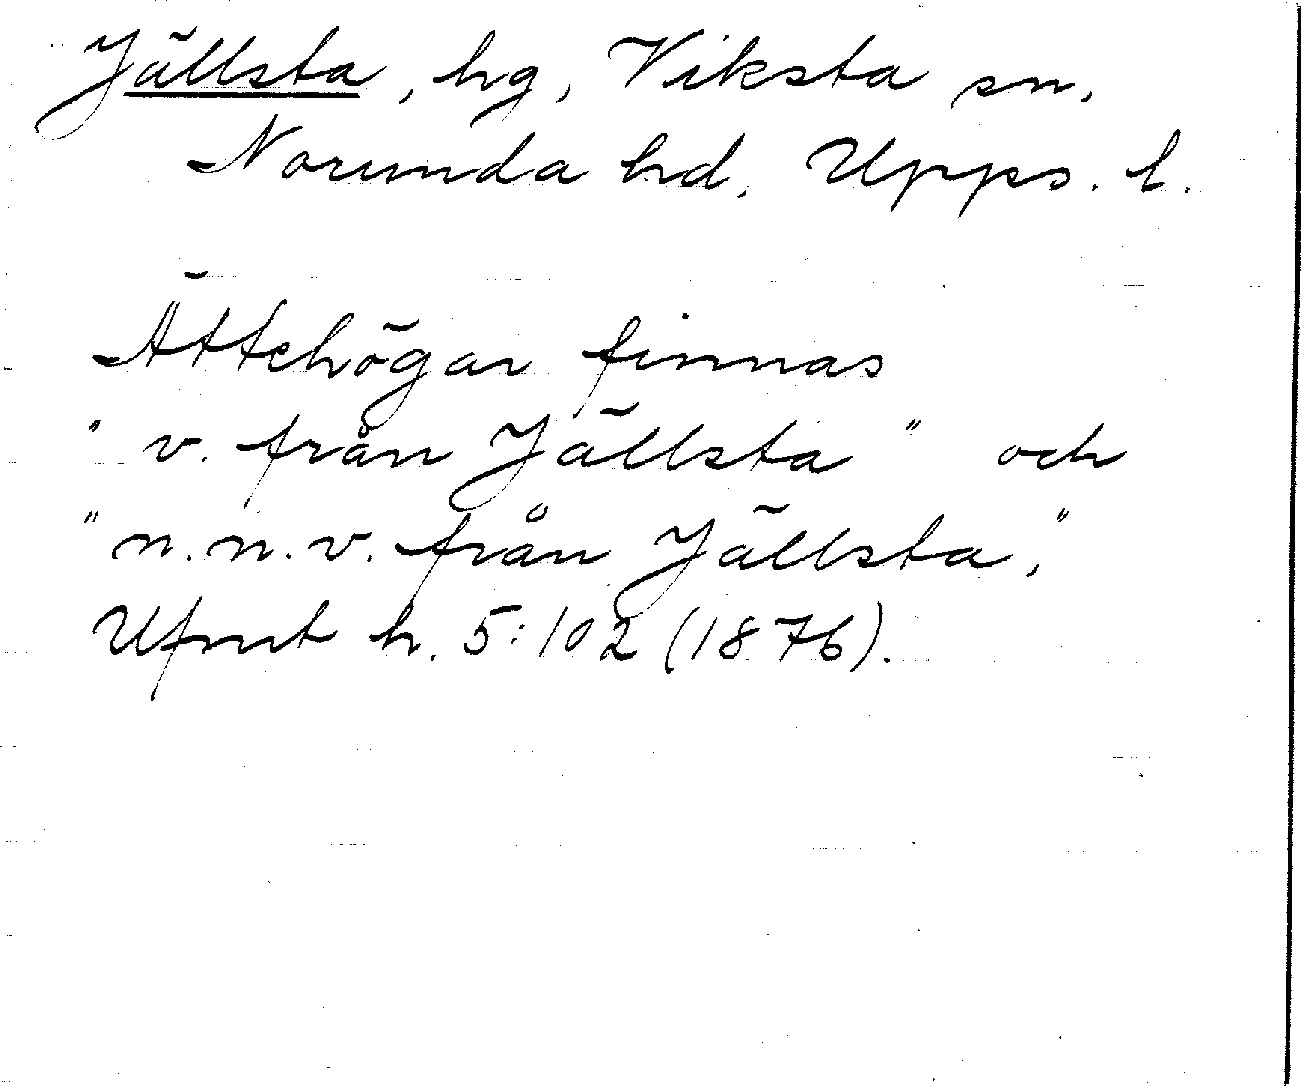 Jällsta, hg, Viksta sn,
Norunda hd, Upps. l.
Ättehögar finnas
"v. från Jällsta" och
"n.n.v. från Jällsta,"
Ufmt h. 5:102 (1876).